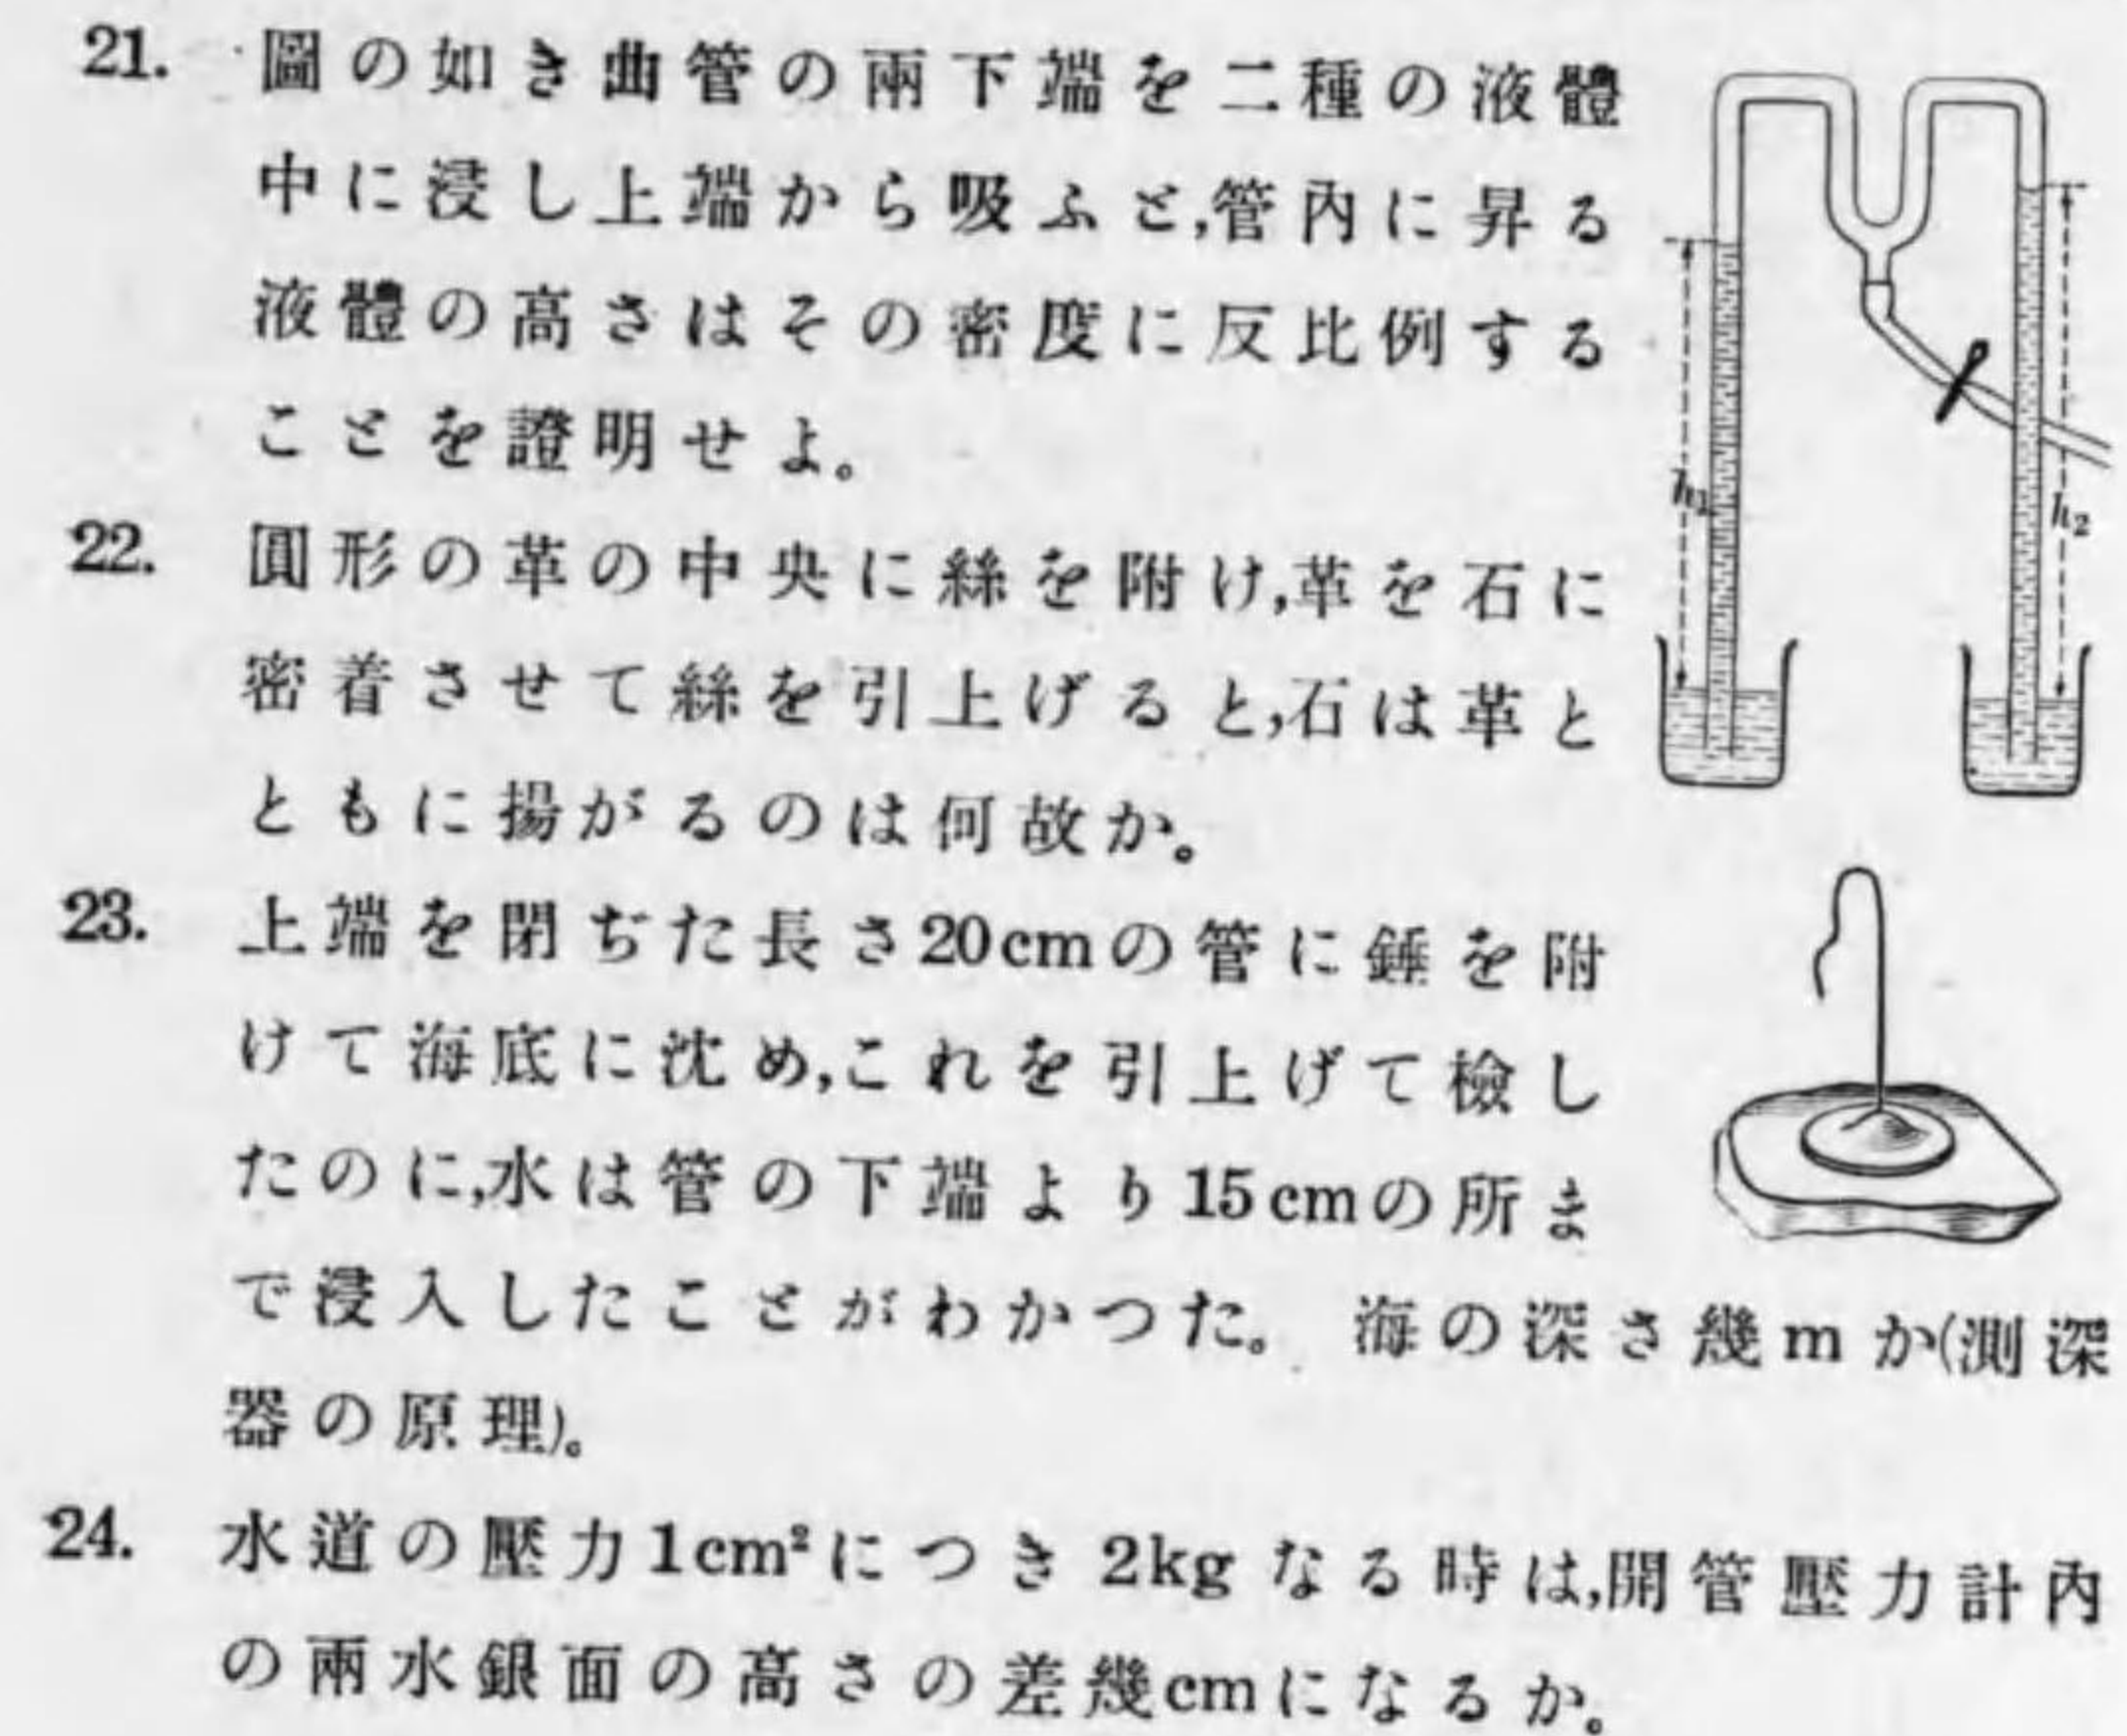 21. 圖の如き曲管の兩下端を二種の液體
中に浸し上端から吸ふと,管內に昇る
液體の高さはその密度に反比例する
ことを證明せよ。
h1
h2
22. 圓形の革の中央に絲を附け,革を石に
密着させて絲を引上げると,石は革と
ともに揚がるのは何故か。
23. 上端を閉ぢた長さ20cmの管に錘を附
けて海底に沈め,これを引上げて檢し
たのに,水は管の下端より15cmの所ま
で浸入したことがわかつた。 海の深さ幾mか(測深
器の原理)。
24. 水道の壓力1cm²につき2kgなる時は,開管壓力計內
の兩水銀面の高さの差幾cmになるか。